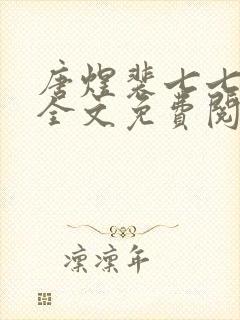 唐煌裴七七
全文免費閱
凛凛年